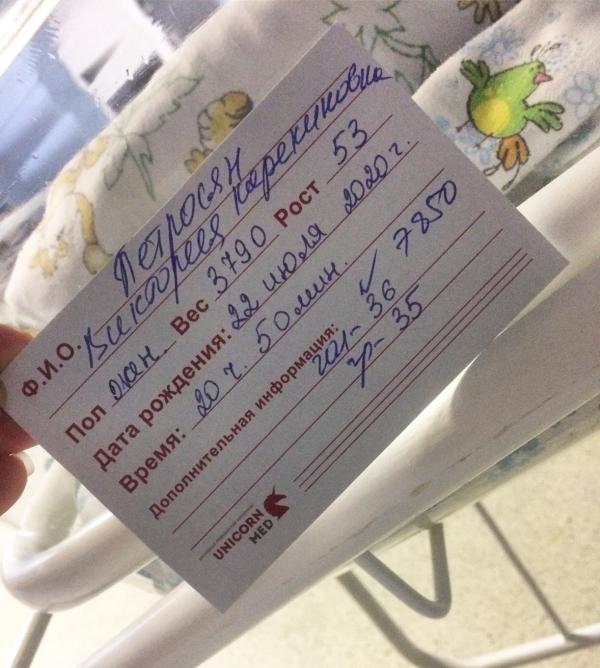 Петросян
Ф.И.О. Виктория Карекиновна
Пол жен. Вес 3790 Рост 53
Дата рождения: 22 июля 2020 г.
Время: 20 ч. 50 мин.
Дополнительная информация: гол- 36 ✓ 7850
гр- 35
UNICORN
MED